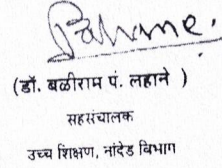 (डॉ. बळीराम पं. लहाने )
सहसंचालक
उच्च शिक्षण, नांदेड विभाग